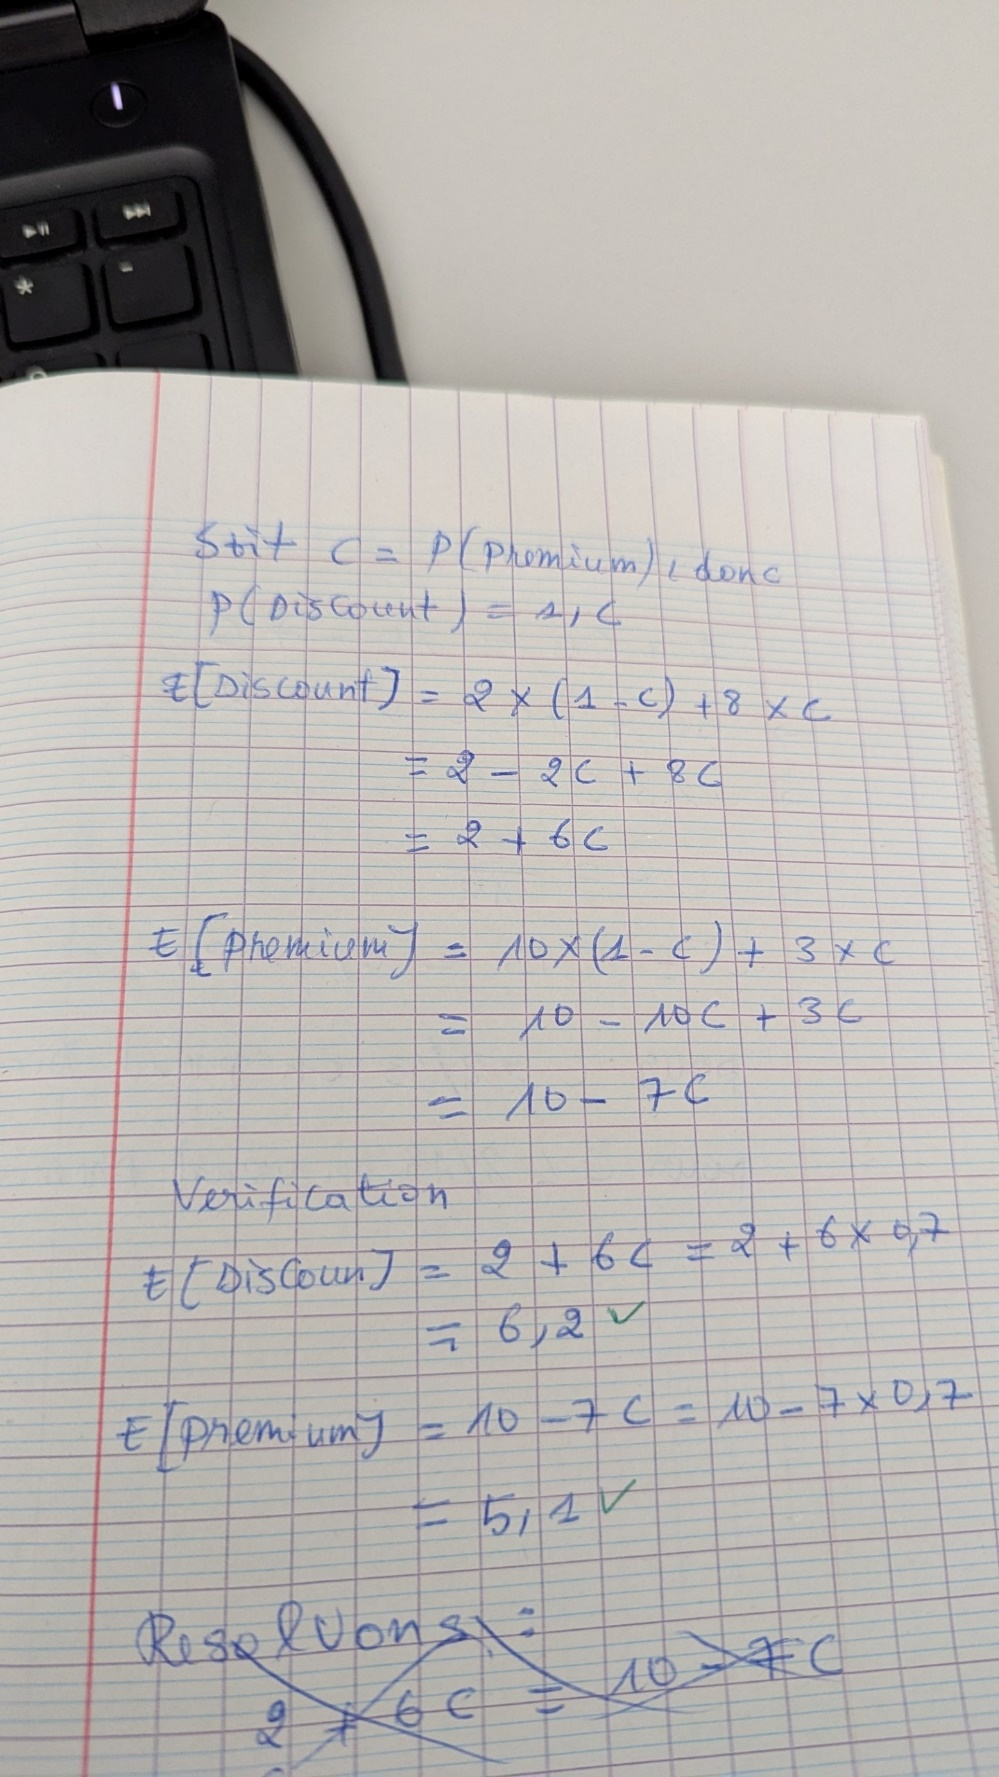 Soit C = P(Premium), donc
P(Discount) = 1, C
E[Discount] = 2 × (1 - C) + 8 × C
= 2 - 2C + 8C
= 2 + 6C
E[Premium] = 10×(1 - C) + 3 × C
= 10 - 10C + 3C
= 10 - 7C
Verification
E[Discoun] = 2 + 6C = 2 + 6 × 0,7
= 6,2 ✓
E[premium] = 10 - 7C = 10 - 7 × 0,7
= 5,1 ✓
Resolvons :
2 + 6C = 10 - 7C